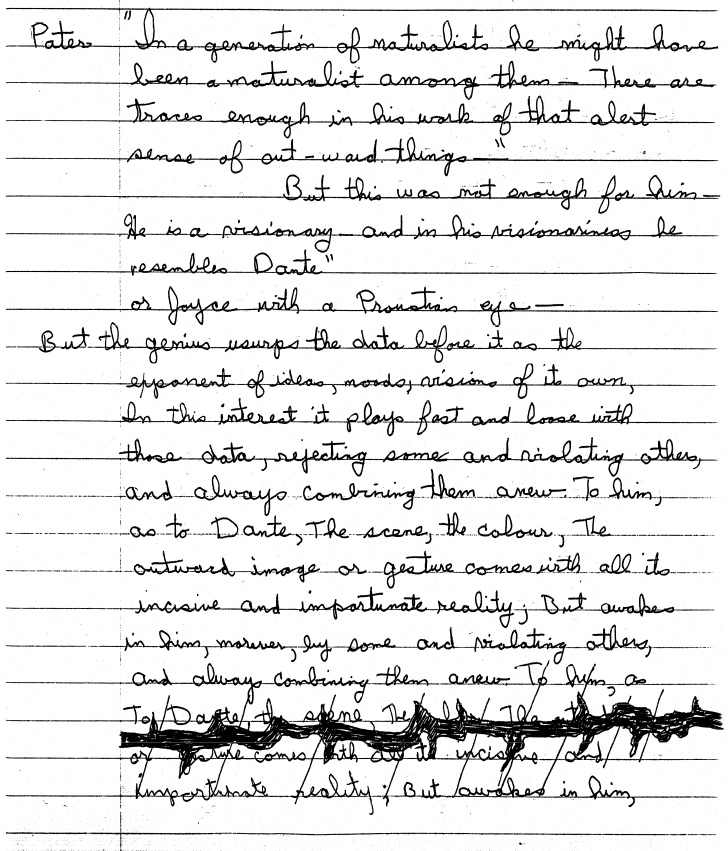 Pater "In a generation of naturalists he might have
been a naturalist among them — There are
traces enough in his work of that alert
sense of out-ward things —"
But this was not enough for him —
He is a visionary — and in his visionariness he
resembles Dante"
or Joyce with a Proustian eye —
But the genius usurps the data before it as the
epponent of ideas, moods, visions of its own,
In this interest it plays fast and loose with
those data, rejecting some and violating others,
and always combining them anew. To him,
as to Dante, The scene, the colour, The
outward image or gesture comes with all its
incisive and importunate reality; But awakes
in him, moreover, by some and violating others,
and always combining them anew. To him, as
To Dante, the scene, The
or gesture comes with all its incisive and
importunate reality; But awakes in him,